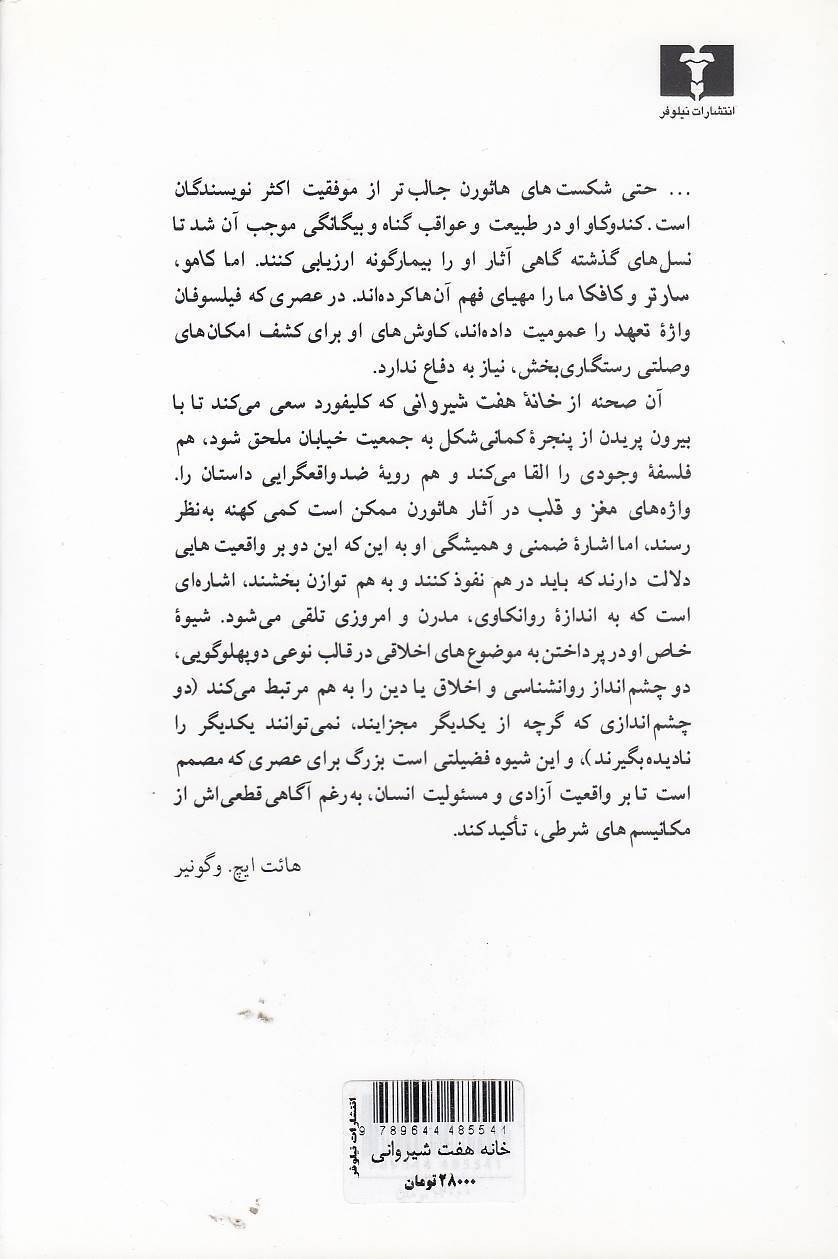 انتشارات نیلوفر
... حتی شکست های هاثورن جالب تر از موفقیت اکثر نویسندگان
است. کندوکاو او در طبیعت و عواقب گناه و بیگانگی موجب آن شد تا
نسل های گذشته گاهی آثار او را بیمارگونه ارزیابی کنند. اما کامو،
سارتر و کافکا ما را مهیای فهم آن ها کرده اند. در عصری که فیلسوفان
واژهٔ تعهد را عمومیت داده اند، کاوش های او برای کشف امکان های
وصلتی رستگاری بخش، نیاز به دفاع ندارد.
آن صحنه از خانهٔ هفت شیروانی که کلیفورد سعی می کند تا با
بیرون پریدن از پنجرهٔ کمانی شکل به جمعیت خیابان ملحق شود، هم
فلسفهٔ وجودی را القا می کند و هم رویهٔ ضد واقعگرایی داستان را.
واژه های مغز و قلب در آثار هاثورن ممکن است کمی کهنه به نظر
رسند، اما اشارهٔ ضمنی و همیشگی او به این که این دو بر واقعیت هایی
دلالت دارند که باید در هم نفوذ کنند و به هم توازن بخشند، اشاره ای
است که به اندازهٔ روانکاوی، مدرن و امروزی تلقی می شود. شیوهٔ
خاص او در پرداختن به موضوع های اخلاقی در قالب نوعی دوپهلوگویی،
دو چشم انداز روانشناسی و اخلاق یا دین را به هم مرتبط می کند (دو
چشم اندازی که گرچه از یکدیگر مجزایند، نمی توانند یکدیگر را
نادیده بگیرند)، و این شیوه فضیلتی است بزرگ برای عصری که مصمم
است تا بر واقعیت آزادی و مسئولیت انسان، به رغم آگاهی قطعی اش از
مکانیسم های شرطی، تأکید کند.
هائت ایچ. وگونیر
انتشارات نیلوفر
9 789644 485541
خانه هفت شیروانی
۲۸۰۰۰ تومان